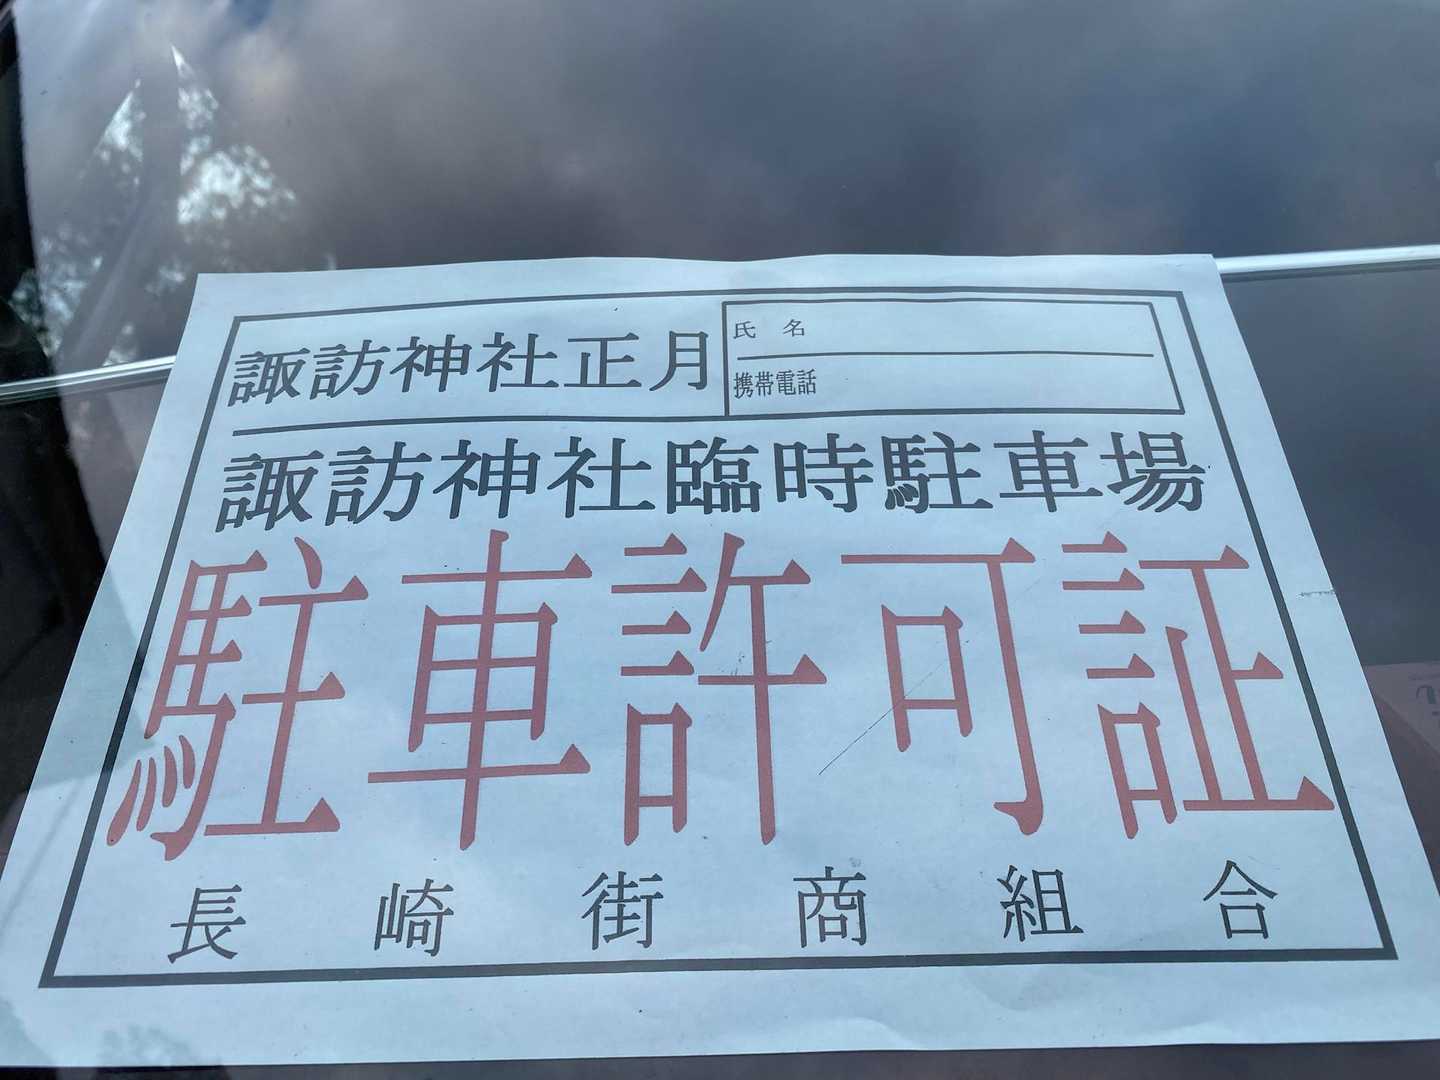 諏訪神社正月
氏 名
携帯電話
諏訪神社臨時駐車場
駐車許可証
長崎街商組合